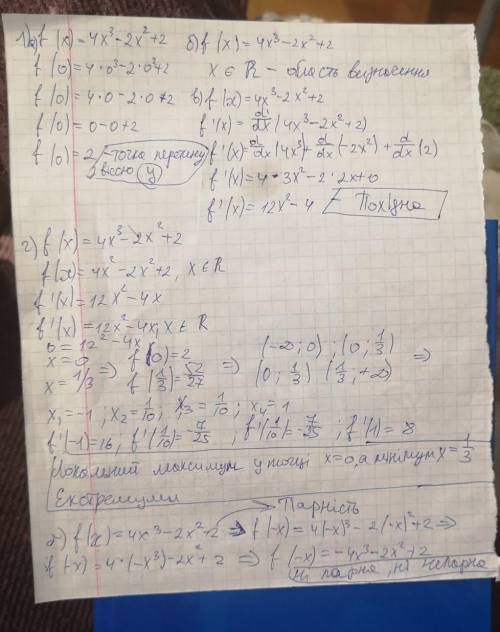 1) а) f(x) = 4x³ - 2x² + 2
f(0) = 4·0³ - 2·0² + 2
f(0) = 4·0 - 2·0 + 2
f(0) = 0 - 0 + 2
f(0) = 2 - точка перетину з віссю y
б) f(x) = 4x³ - 2x² + 2
x ∈ R - область визначення
в) f(x) = 4x³ - 2x² + 2
f'(x) = d/dx (4x³ - 2x² + 2)
f'(x) = d/dx (4x³) + d/dx (-2x²) + d/dx (2)
f'(x) = 4·3x² - 2·2x + 0
f'(x) = 12x² - 4 - Похідна
г) f(x) = 4x³ - 2x² + 2
f(x) = 4x² - 2x² + 2, x ∈ R
f'(x) = 12x² - 4x
f'(x) = 12x² - 4x, x ∈ R
0 = 12² - 4x
x = 0
x = 1/3 ⇒ f(0) = 2
f(1/3) = 52/27 ⇒ (-∞; 0) ; (0; 1/3)
(0; 1/3) (1/3; +∞) ⇒
x₁ = -1 ; x₂ = 1/10 ; x₃ = 1/10 ; x₄ = 1
f'(-1) = 16 ; f'(1/10) = -7/25 ; f'(1/10) = -7/25 ; f'(1) = 8
Локальний максимум у точці x = 0, а мінімум x = 1/3
Екстремуми
Парність
f(x) = 4x³ - 2x² + 2 ⇒ f(-x) = 4(-x)³ - 2(-x)² + 2 ⇒
f(-x) = 4·(-x³) - 2x² + 2 ⇒ f(-x) = -4x³ - 2x² + 2
ні парна, ні непарна